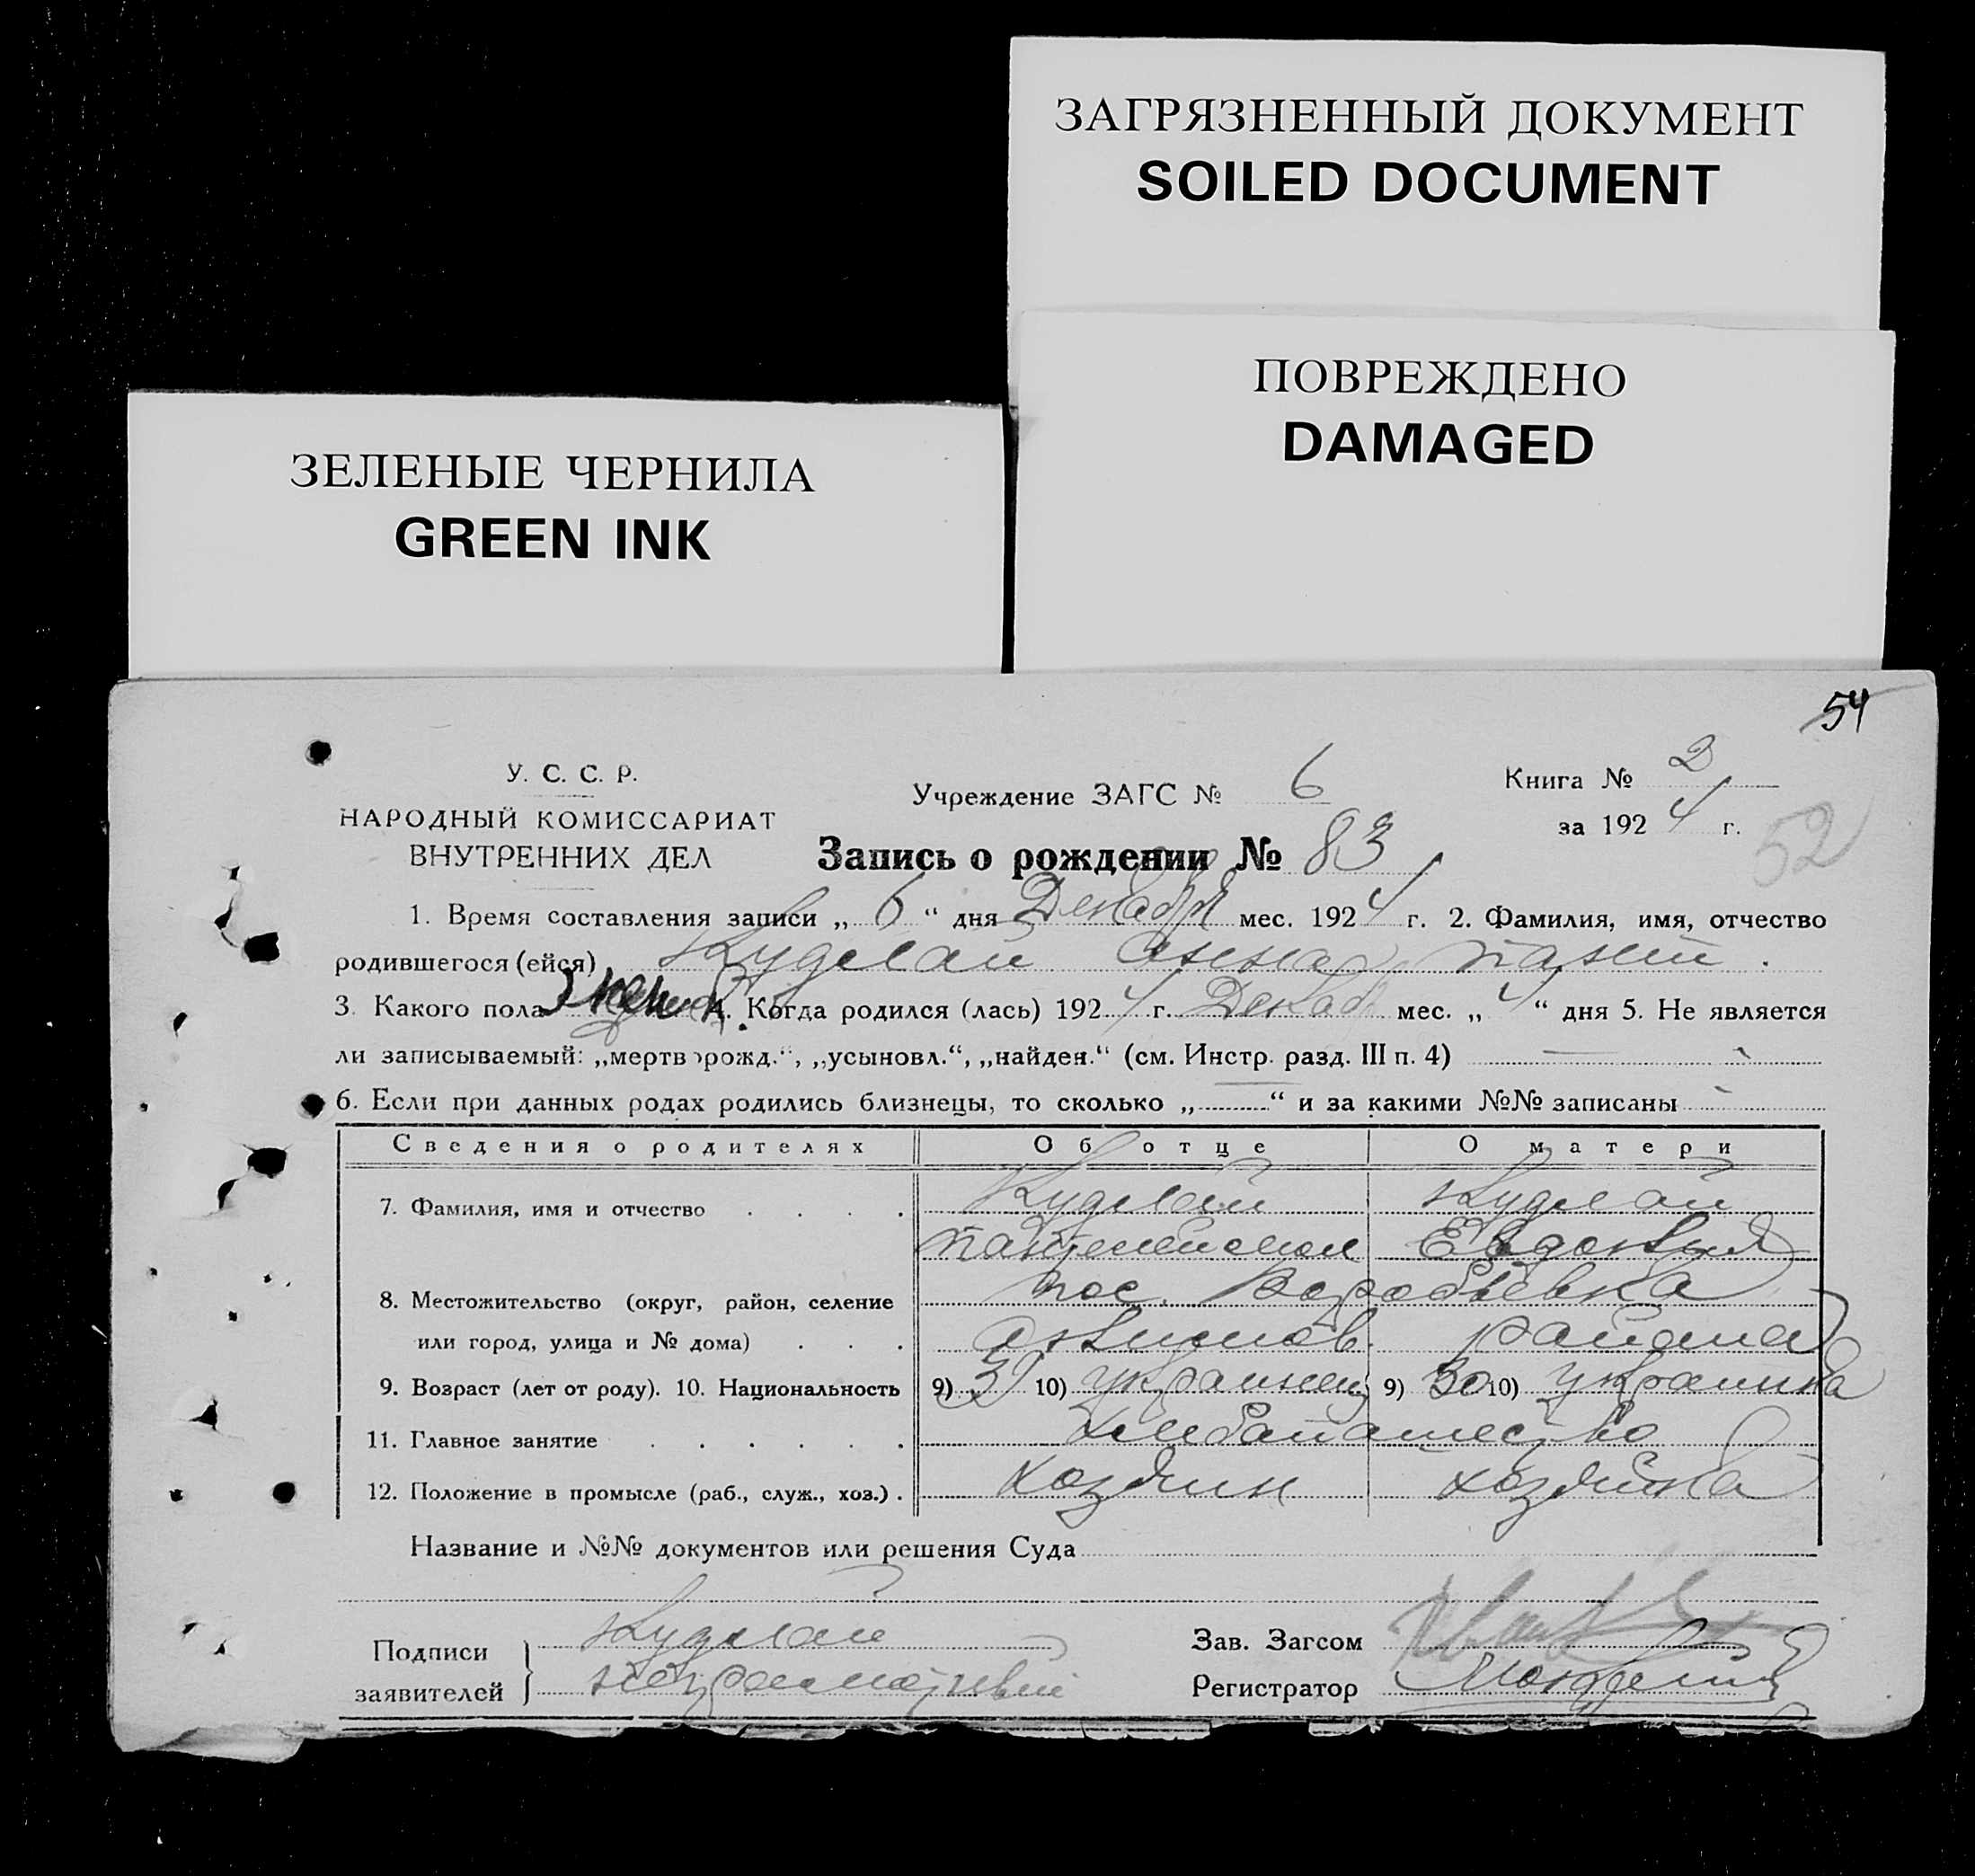 ЗАГРЯЗНЕННЫЙ ДОКУМЕНТ
SOILED DOCUMENT
ПОВРЕЖДЕНО
DAMAGED
ЗЕЛЕНЫЕ ЧЕРНИЛА
GREEN INK
54
У. С. С. Р.
НАРОДНЫЙ КОМИССАРИАТ
ВНУТРЕННИХ ДЕЛ
Учреждение ЗАГС № 6
Книга № 2
за 1924 г.
52
Запись о рождении № 83
1. Время составления записи „ 6 “ дня Декабря мес. 1924 г. 2. Фамилия, имя, отчество
родившегося (ейся) Куделай Анна
3. Какого пола Женск. 4. Когда родился (лась) 1924 г. Декаб мес. „ 4 “ дня 5. Не является
ли записываемый: „мертворожд.“, „усыновл.“, „найден.“ (см. Инстр. разд. III п. 4) —
6. Если при данных родах родились близнецы, то сколько „ — “ и за какими №№ записаны
Сведения о родителях Об отце О матери
7. Фамилия, имя и отчество Куделай Куделай
Пантелеймон Евдокия
8. Местожительство (округ, район, селение пос. Воробьевка
или город, улица и № дома) района
9. Возраст (лет от роду). 10. Национальность 9) 31 10) украинец 9) 30 10) украинка
11. Главное занятие хлебопашество
12. Положение в промысле (раб., служ., хоз.) хозяин хозяйка
Название и №№ документов или решения Суда
Подписи заявителей } Куделай
неграмотный
Зав. Загсом
Регистратор